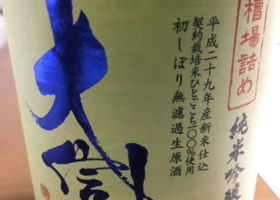 槽場詰め
純米吟醸
平成二十九年産新米仕込
契約栽培米ひとごこち一〇〇%使用
初しぼり無濾過生原酒
大信州